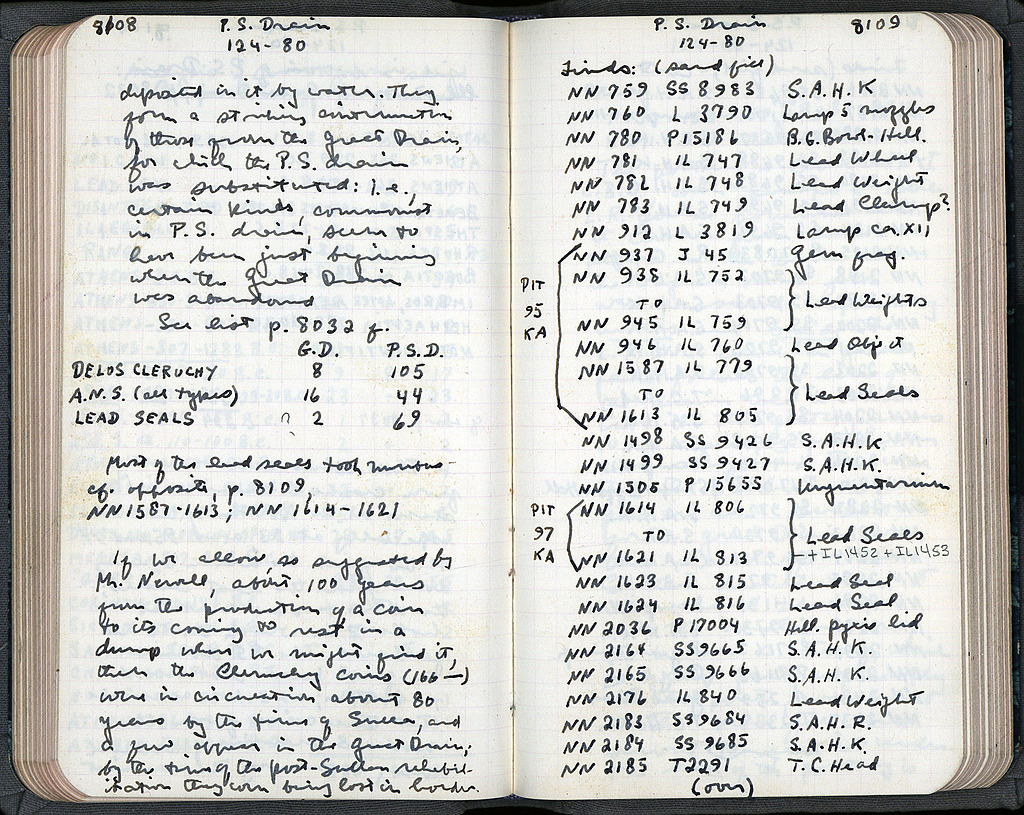 8108
P.S. Drain
124-80
deposited in it by water. They
form a striking continuation
by those from the Great Drain,
for which the P.S. drain
was substituted: i.e.
certain kinds, commonest
in P.S. drain, seem to
have been just beginning
when the Great Drain
was abandoned
See list p. 8032 f.
G.D. P.S.D.
DELOS CLERUCHY 8 105
A.N.S. (all types) 16 44
LEAD SEALS 2 69
Most of the lead seals took
cf. opposite, p. 8109,
NN1587-1613; NN1614-1621
If we allow as suggested by
Mr. Newell, about 100 years
from the production of a coin
to its coming to rest in a
dump where we might find it,
then the Cleruchy coins (166—)
were in circulation about 80
years by the time of Sulla, and
a few appear in the Great Drain;
by the time of the post-Sullan rehabil-
itation they were being lost in hordes.
P.S. Drain
8109
124-80
Finds: (sand fill)
NN 759 SS 8983 S.A.H.K
NN 760 L 3790 Lamp 5 nozzles
NN 780 P15186 B.G. Bowl. Hell.
NN 781 IL 747 Lead Wheel
NN 782 IL 748 Lead Weight
NN 783 IL 749 Lead Clamp?
NN 912 L 3819 Lamp ca. XII
NN 937 J 45 Gem frag.
PIT 95 KA
NN 938 IL 752
TO Lead Weights
NN 945 IL 759
NN 946 IL 760 Lead Object
NN 1587 IL 779
TO Lead Seals
NN 1613 IL 805
NN 1498 SS 9426 S.A.H.K
NN 1499 SS 9427 S.A.H.K.
NN 1505 P 15655 Unguentarium
PIT 97 KA
NN 1614 IL 806
TO Lead Seals
NN 1621 IL 813 + IL1452 + IL1453
NN 1623 IL 815 Lead Seal
NN 1624 IL 816 Lead Seal
NN 2036 P 17004 Hell. pyxis lid
NN 2164 SS9665 S.A.H.K.
NN 2165 SS9666 S.A.H.K.
NN 2176 IL840 Lead Weight
NN 2183 SS9684 S.A.H.R.
NN 2184 SS 9685 S.A.H.K.
NN 2185 T2291 T.C. Head
(over)